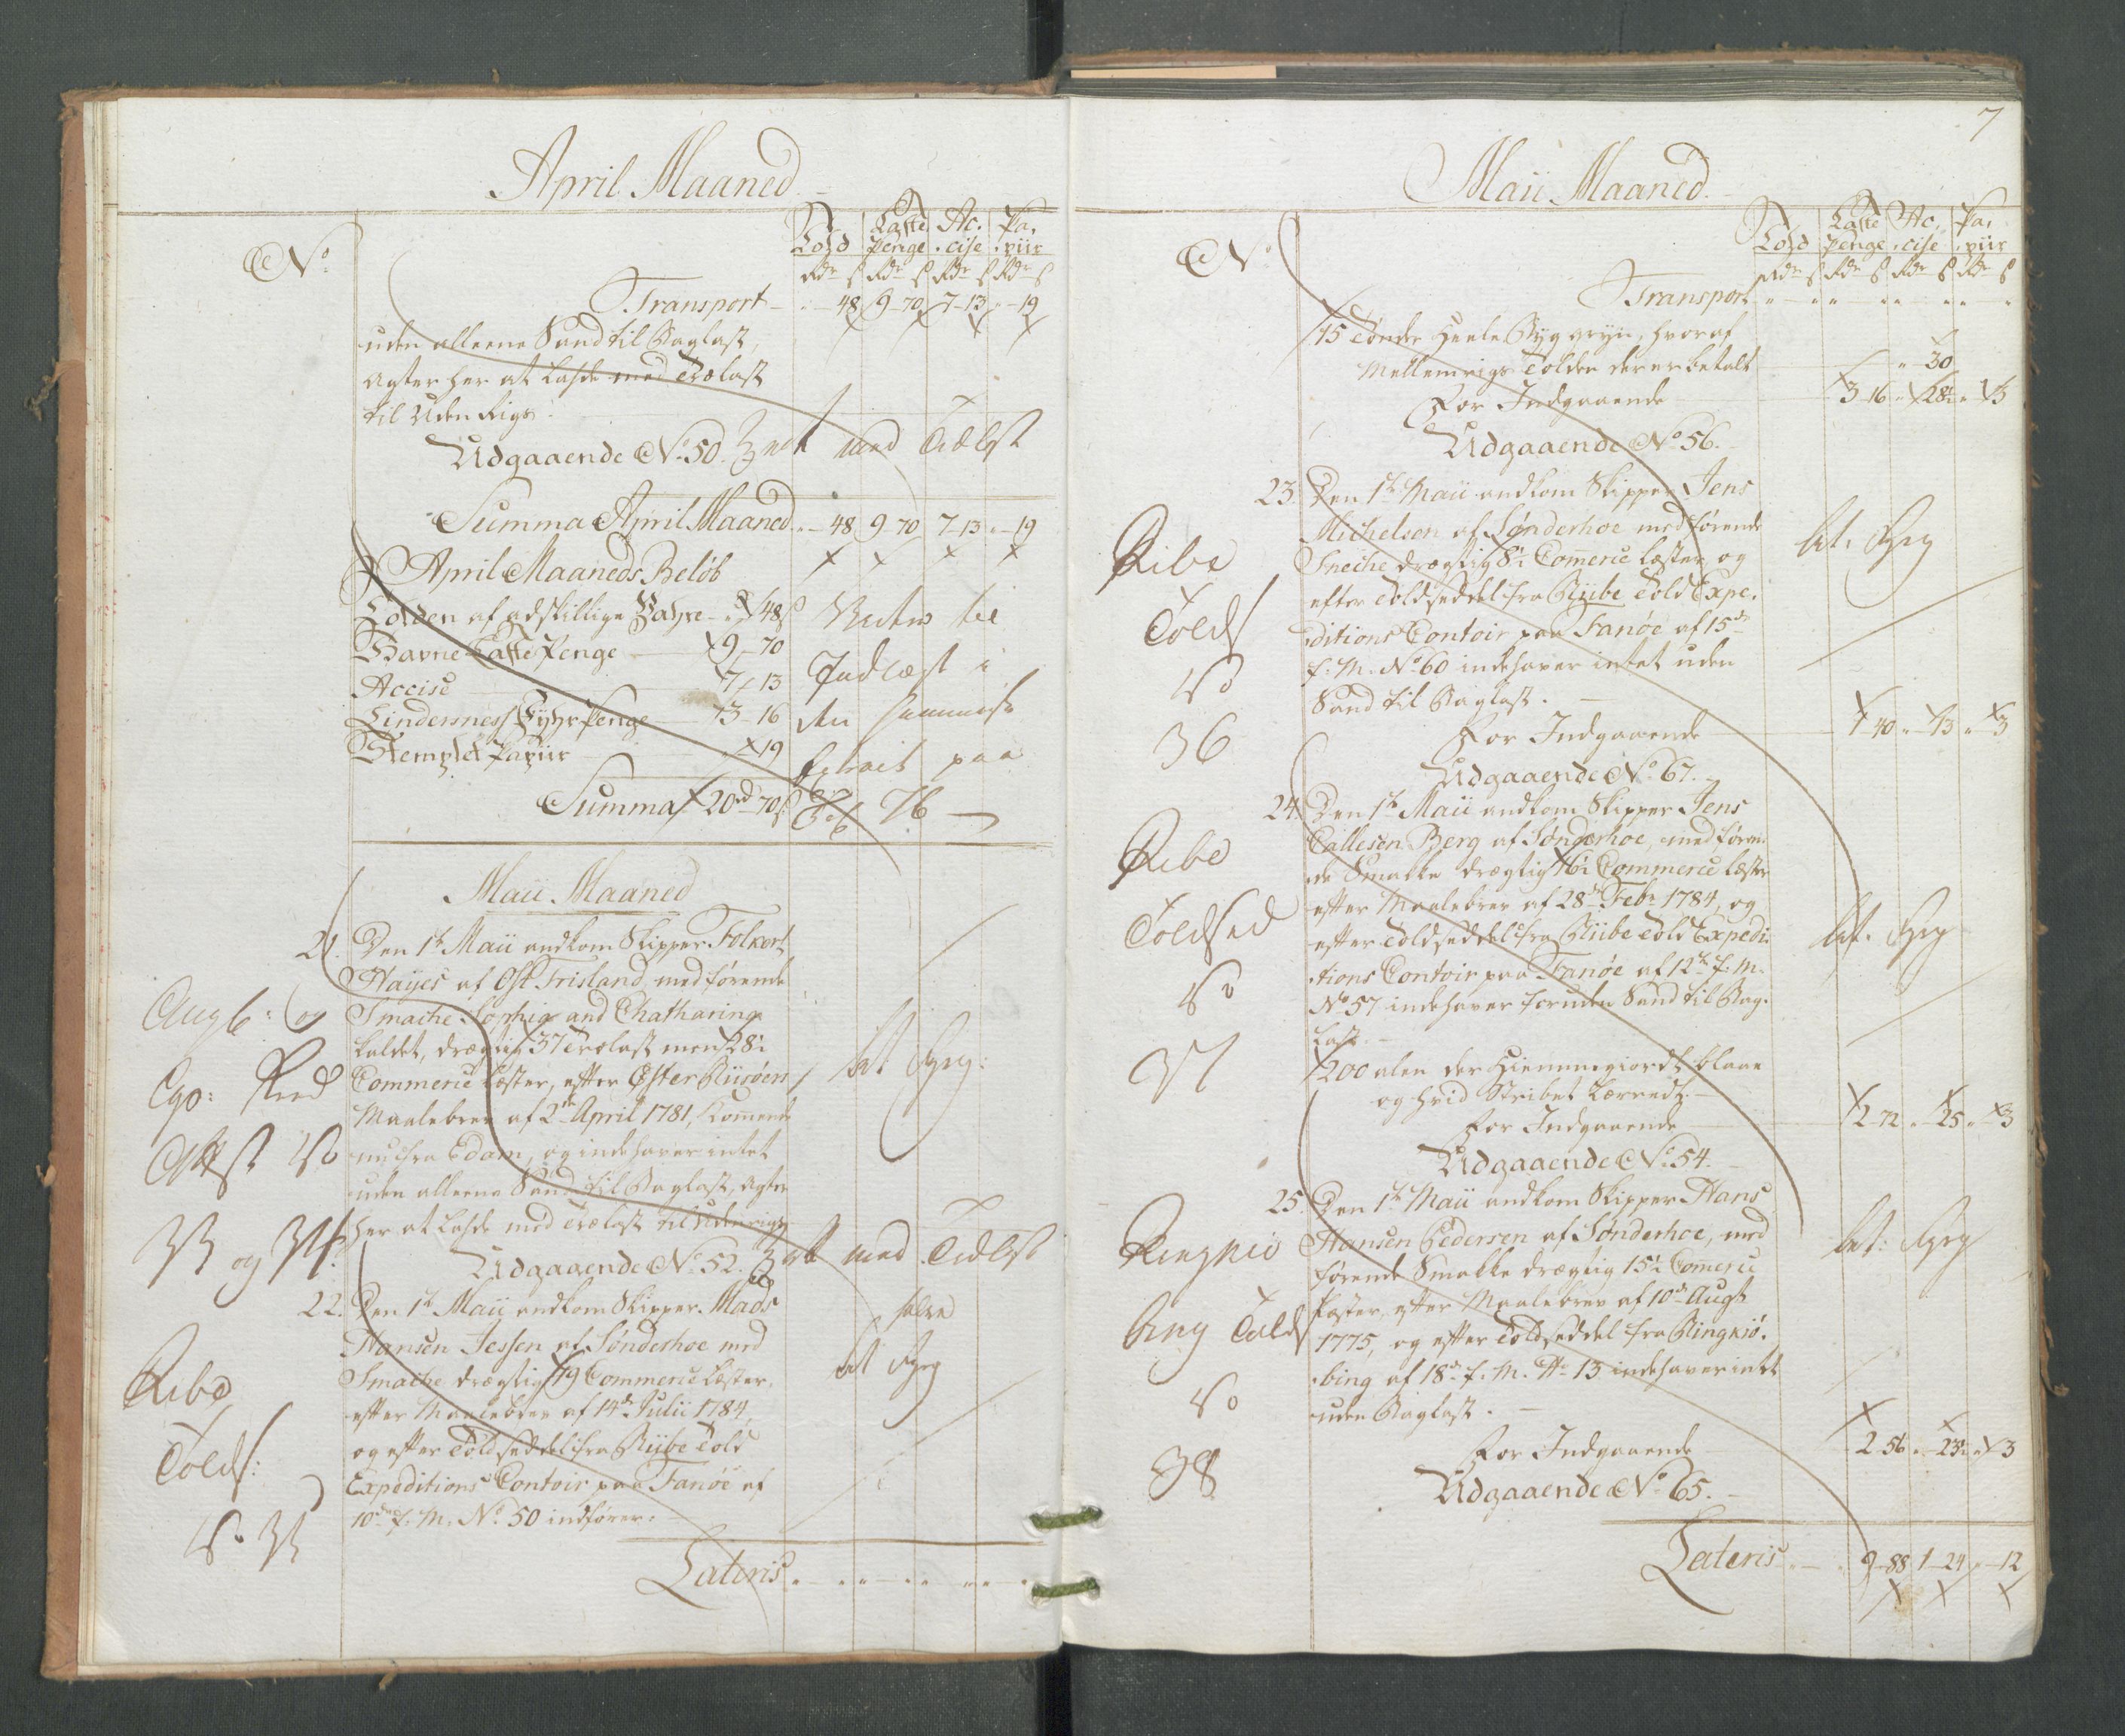 April Maaned
No
Told
Laste Penge
Accise
Papiir
Rdr ß Rdr ß Rdr ß Rdr ß
Transport „ - 48 9 - 70 7 - 13 „ - 19
uden alleene Sand til Baglast,
agter her at lahde med Trælast
til Uden Rigs.
Udgaaende No 50. med Trælast
Summa April Maaned „ - 48 9 - 70 7 - 13 „ - 19
April Maaneds Beløb
Tolden af adskillige Vahre - „ 48 ß
Havne Laste Penge 9 - 70
Accise 7 - 13
Lindersness Fyhr Penge 3 - 16
Stemplet Papiir „ 19
Summa 20 rd 70 ß
Indlagt i
paa
76
Maii Maaned
21. Den 1te Maii ankom Skipper Folkert
Hayes af Ost Frisland, medførende
Smache Sophia and Chatharina
kaldet, drægtig 37 Trælast men 28½
Commerce Læster, efter Øster Riisøers
Maalebrev af 2de April 1781, kommende
nu fra Edam, og indehaver intet
uden alleene Sand til Baglast, agter
her at lahde med Trælast til Udenrigs
Udgaaende No 52. med Trælast
og
Attest No
33 og 34.
bet
22. Den 1te Maii ankom Skipper Mads
Hansen Jessen af Sønderhoe med
Smache drægtig 19 Commerce Læster,
efter Maalebrev af 14de Julii 1784,
og efter Toldseddel fra Riibe Told
Expeditions Contoir paa Fanøe af
10de f. M. No 50 indfører:
Ribe
Tolds:
No 35
bet
Lateris „ - „ „ - „ „ - „
7
Maii Maaned
No
Told
Laste Penge
Accise
Papiir
Rdr ß Rdr ß Rdr ß Rdr ß
Transport „ - „ „ - „ „ - „
15 Tønder Heele Byg gryn, hvoraf
Mellemrigs Tolden der er betalt „ 30
For Indgaaende 3 16 „ 28½ „ 3
Udgaaende No 56.
23. Den 1te Maii ankom Skipper Jens
Michelsen af Sønderhoe medførende
Sneche drægtig 8½ Commerce Læster, og
efter Toldseddel fra Riibe Told Expe-
ditions Contoir paa Fanøe af 15de
f. M. No 60 indehaver intet uden
Sand til Baglast.
For Indgaaende 1 40 „ 13 „ 3
Udgaaende No 67.
Ribe
Tolds
No
36
bet.
24. Den 1te Maii ankom Skipper Jens
Callesen Berg af Sønderhoe, medføren-
de Smakke drægtig 16½ Commerce Læster
efter Maalebrev af 28de Febr 1784, og
efter Toldseddel fra Riibe Told Expedi-
tions Contoir paa Fanøe af 12te f. M.
No 57 indehaver foruden Sand til Bag-
last.
200 alen der Hiemmegiordt blaae
og hvid Stribet Lærredt.
For Indgaaende 2 72 „ 25 „ 3
Udgaaende No 54.
Ribe
Toldsed
No
37
bet.
25. Den 1te Maii ankom Skipper Hans
Hansen Pedersen af Sønderhoe, med
førende Smakke drægtig 15½ Commerce
Læster, efter Maalebrev af 10de Augt
1775, og efter Toldseddel fra Ringkiø-
bing af 18de f. M. No 13 indehaver intet
uden Baglast.
For Indgaaende 2 56 „ 23½ „ 3
Udgaaende No 65.
Ringkiø
bing Tolds
No
38
bet:
Lateris „ - „ 9 - 88 1 - 24 „ - 12